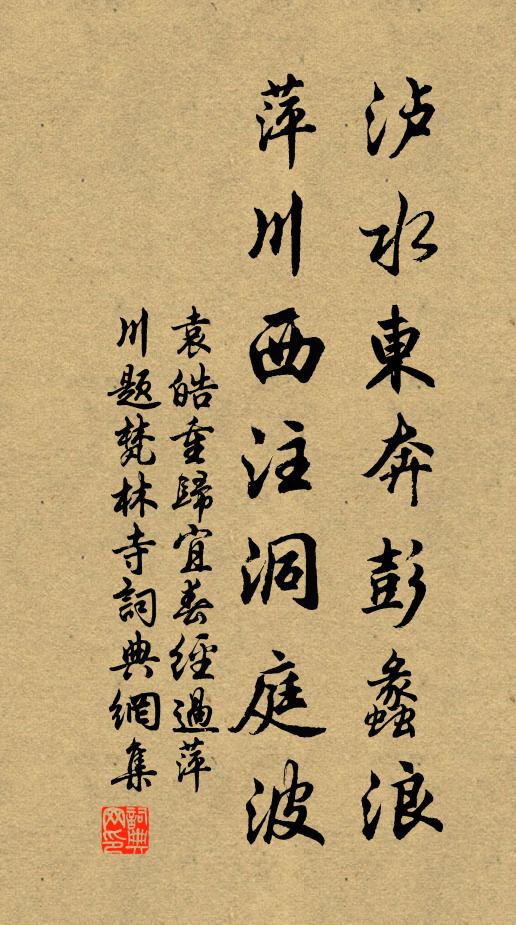 泸水東奔彭蠡浪
萍川西注洞庭波
袁皓重歸宜春經過萍
川題梵林寺詞典網集
詞典
网印